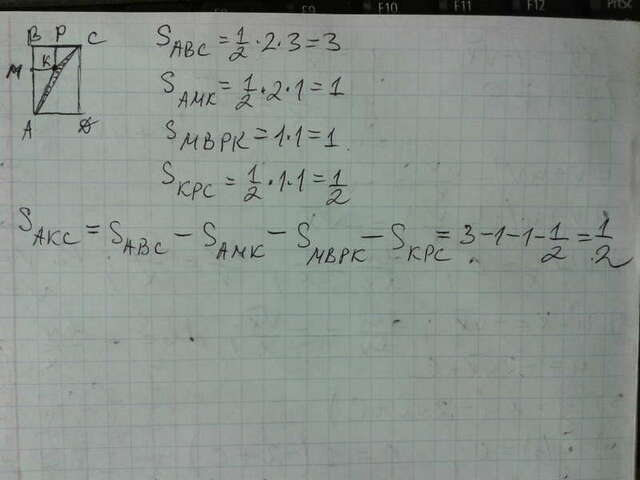 F10 F11 F12 PrtSc
B P C
M K
A D
S_ABC = 1/2 · 2 · 3 = 3
S_AMK = 1/2 · 2 · 1 = 1
S_MBPK = 1 · 1 = 1
S_KPC = 1/2 · 1 · 1 = 1/2
S_AKC = S_ABC - S_AMK - S_MBPK - S_KPC = 3 - 1 - 1 - 1/2 = 1/2